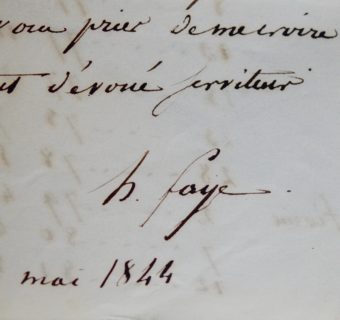 vous prier de me croire
et dévoué serviteur
h. faye.
mai 1844